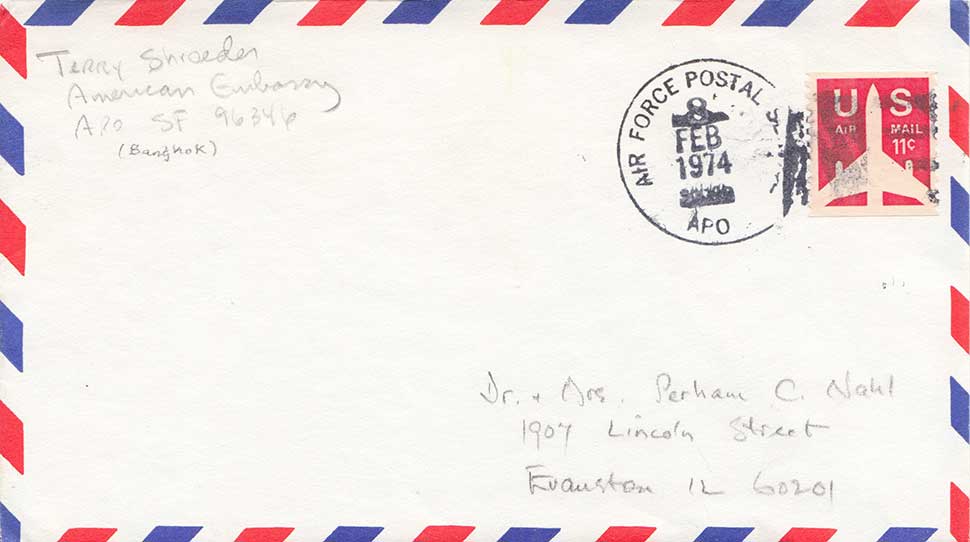 Terry Shroeder
American Embassy
APO SF 96346
(Bangkok)
AIR FORCE POSTAL S
8
FEB
1974
APO
U S
AIR MAIL
11¢
Dr. + Mrs. Perham C. Nahl
1907 Lincoln Street
Evanston IL 60201